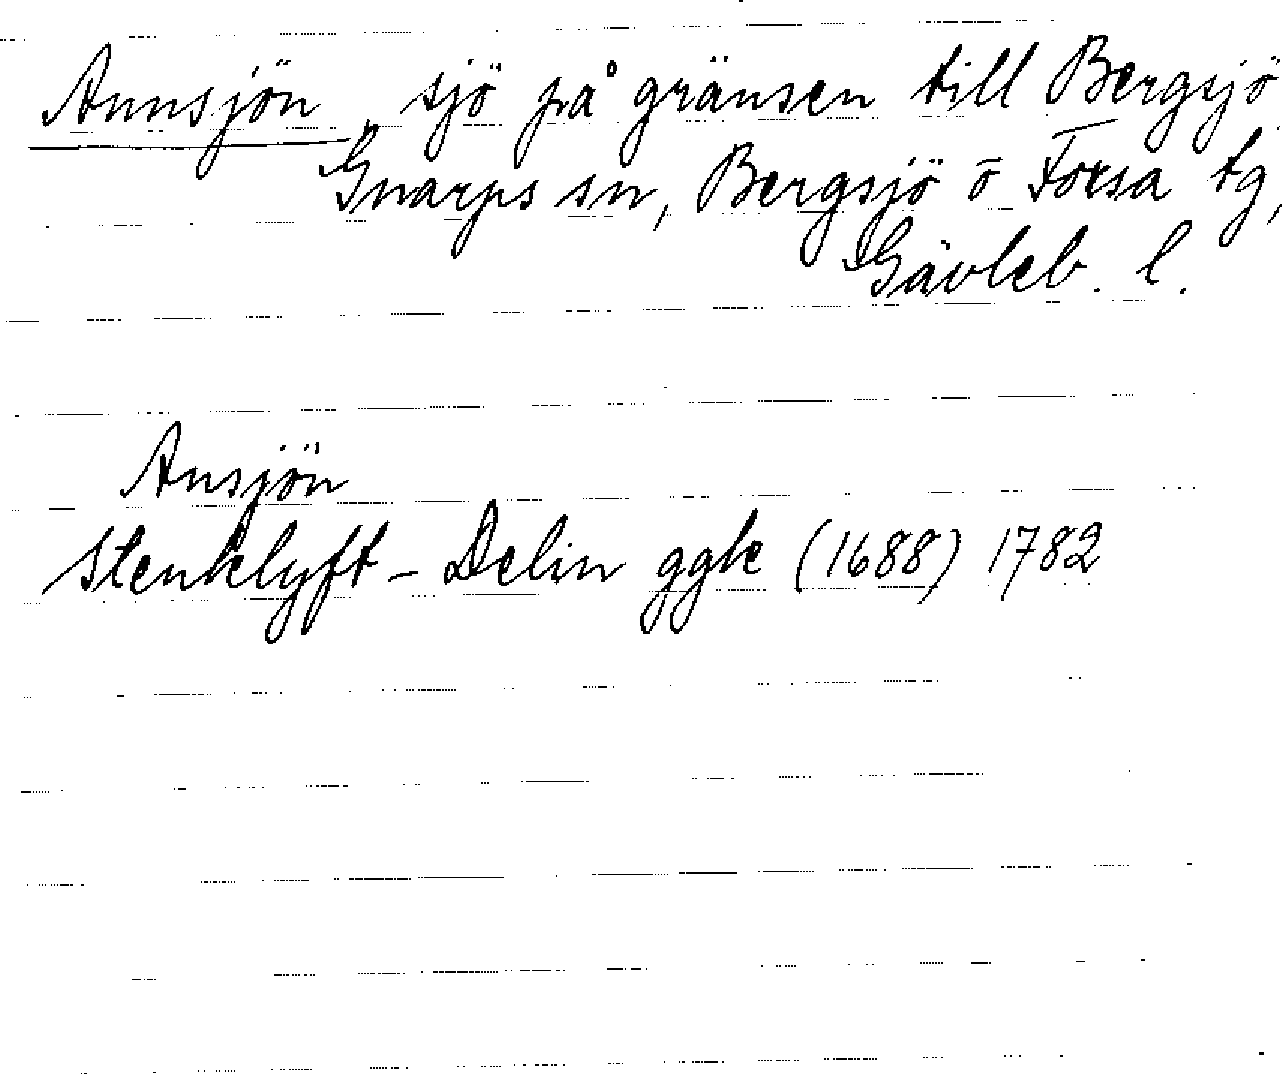 Annsjön, sjö på gränsen till Bergsjö
Gnarps sn, Bergsjö o Forsa tg,
Gävleb. l.
Ansjön
Stenklyft - Delin ggk (1688) 1782